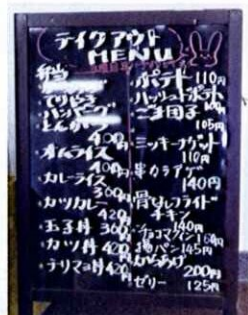 テイクアウト
MENU
弁当
てりやき
ハンバーグ
とんかつ
400円
オムライス
400円
カレーライス
300円
カツカレー
420円
玉子丼 360円
カツ丼 420
テリマヨ丼 420
ポテト 110円
ハッシュドポテト
ごま団子
105円
チキンナゲット
110円
串カラアゲ
140円
骨なしフライド
チキン
140円
チョコマフィン 160円
揚パン 145円
200円
ゼリー 125円